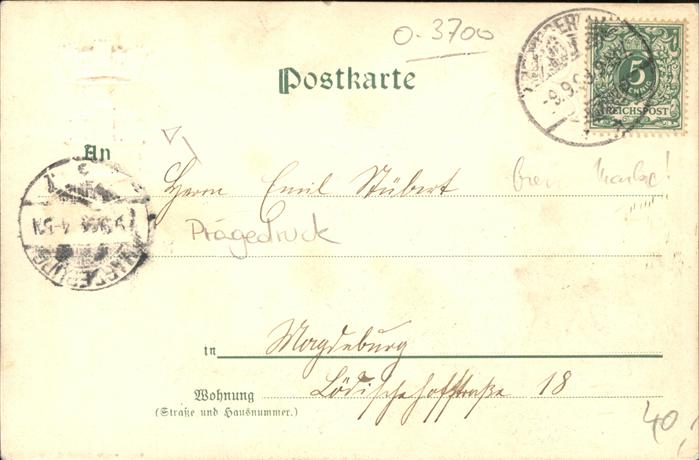 O-3700
Postkarte
5
REICHSPOST
-9.9.
An
Herrn Emil Stübert
Prägedruck
MAGDEBURG
in Magdeburg
Wohnung Lödischehofstraße 18
(Straße und Hausnummer.)
40,